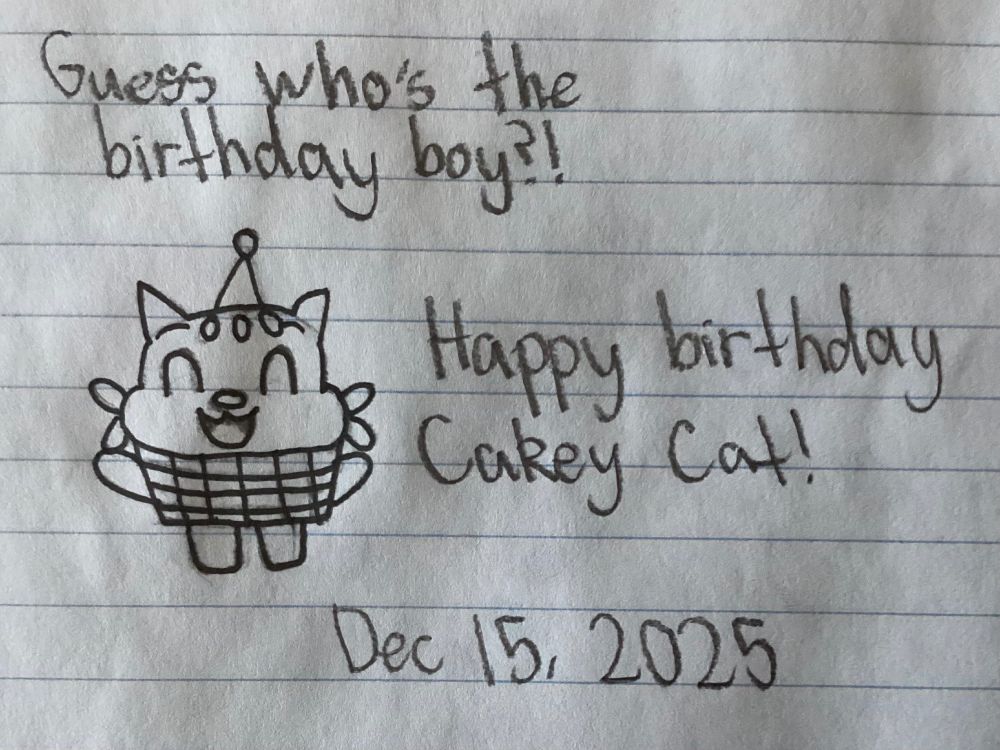 Guess who's the
birthday boy?!
Happy birthday
Cakey Cat!
Dec 15, 2025